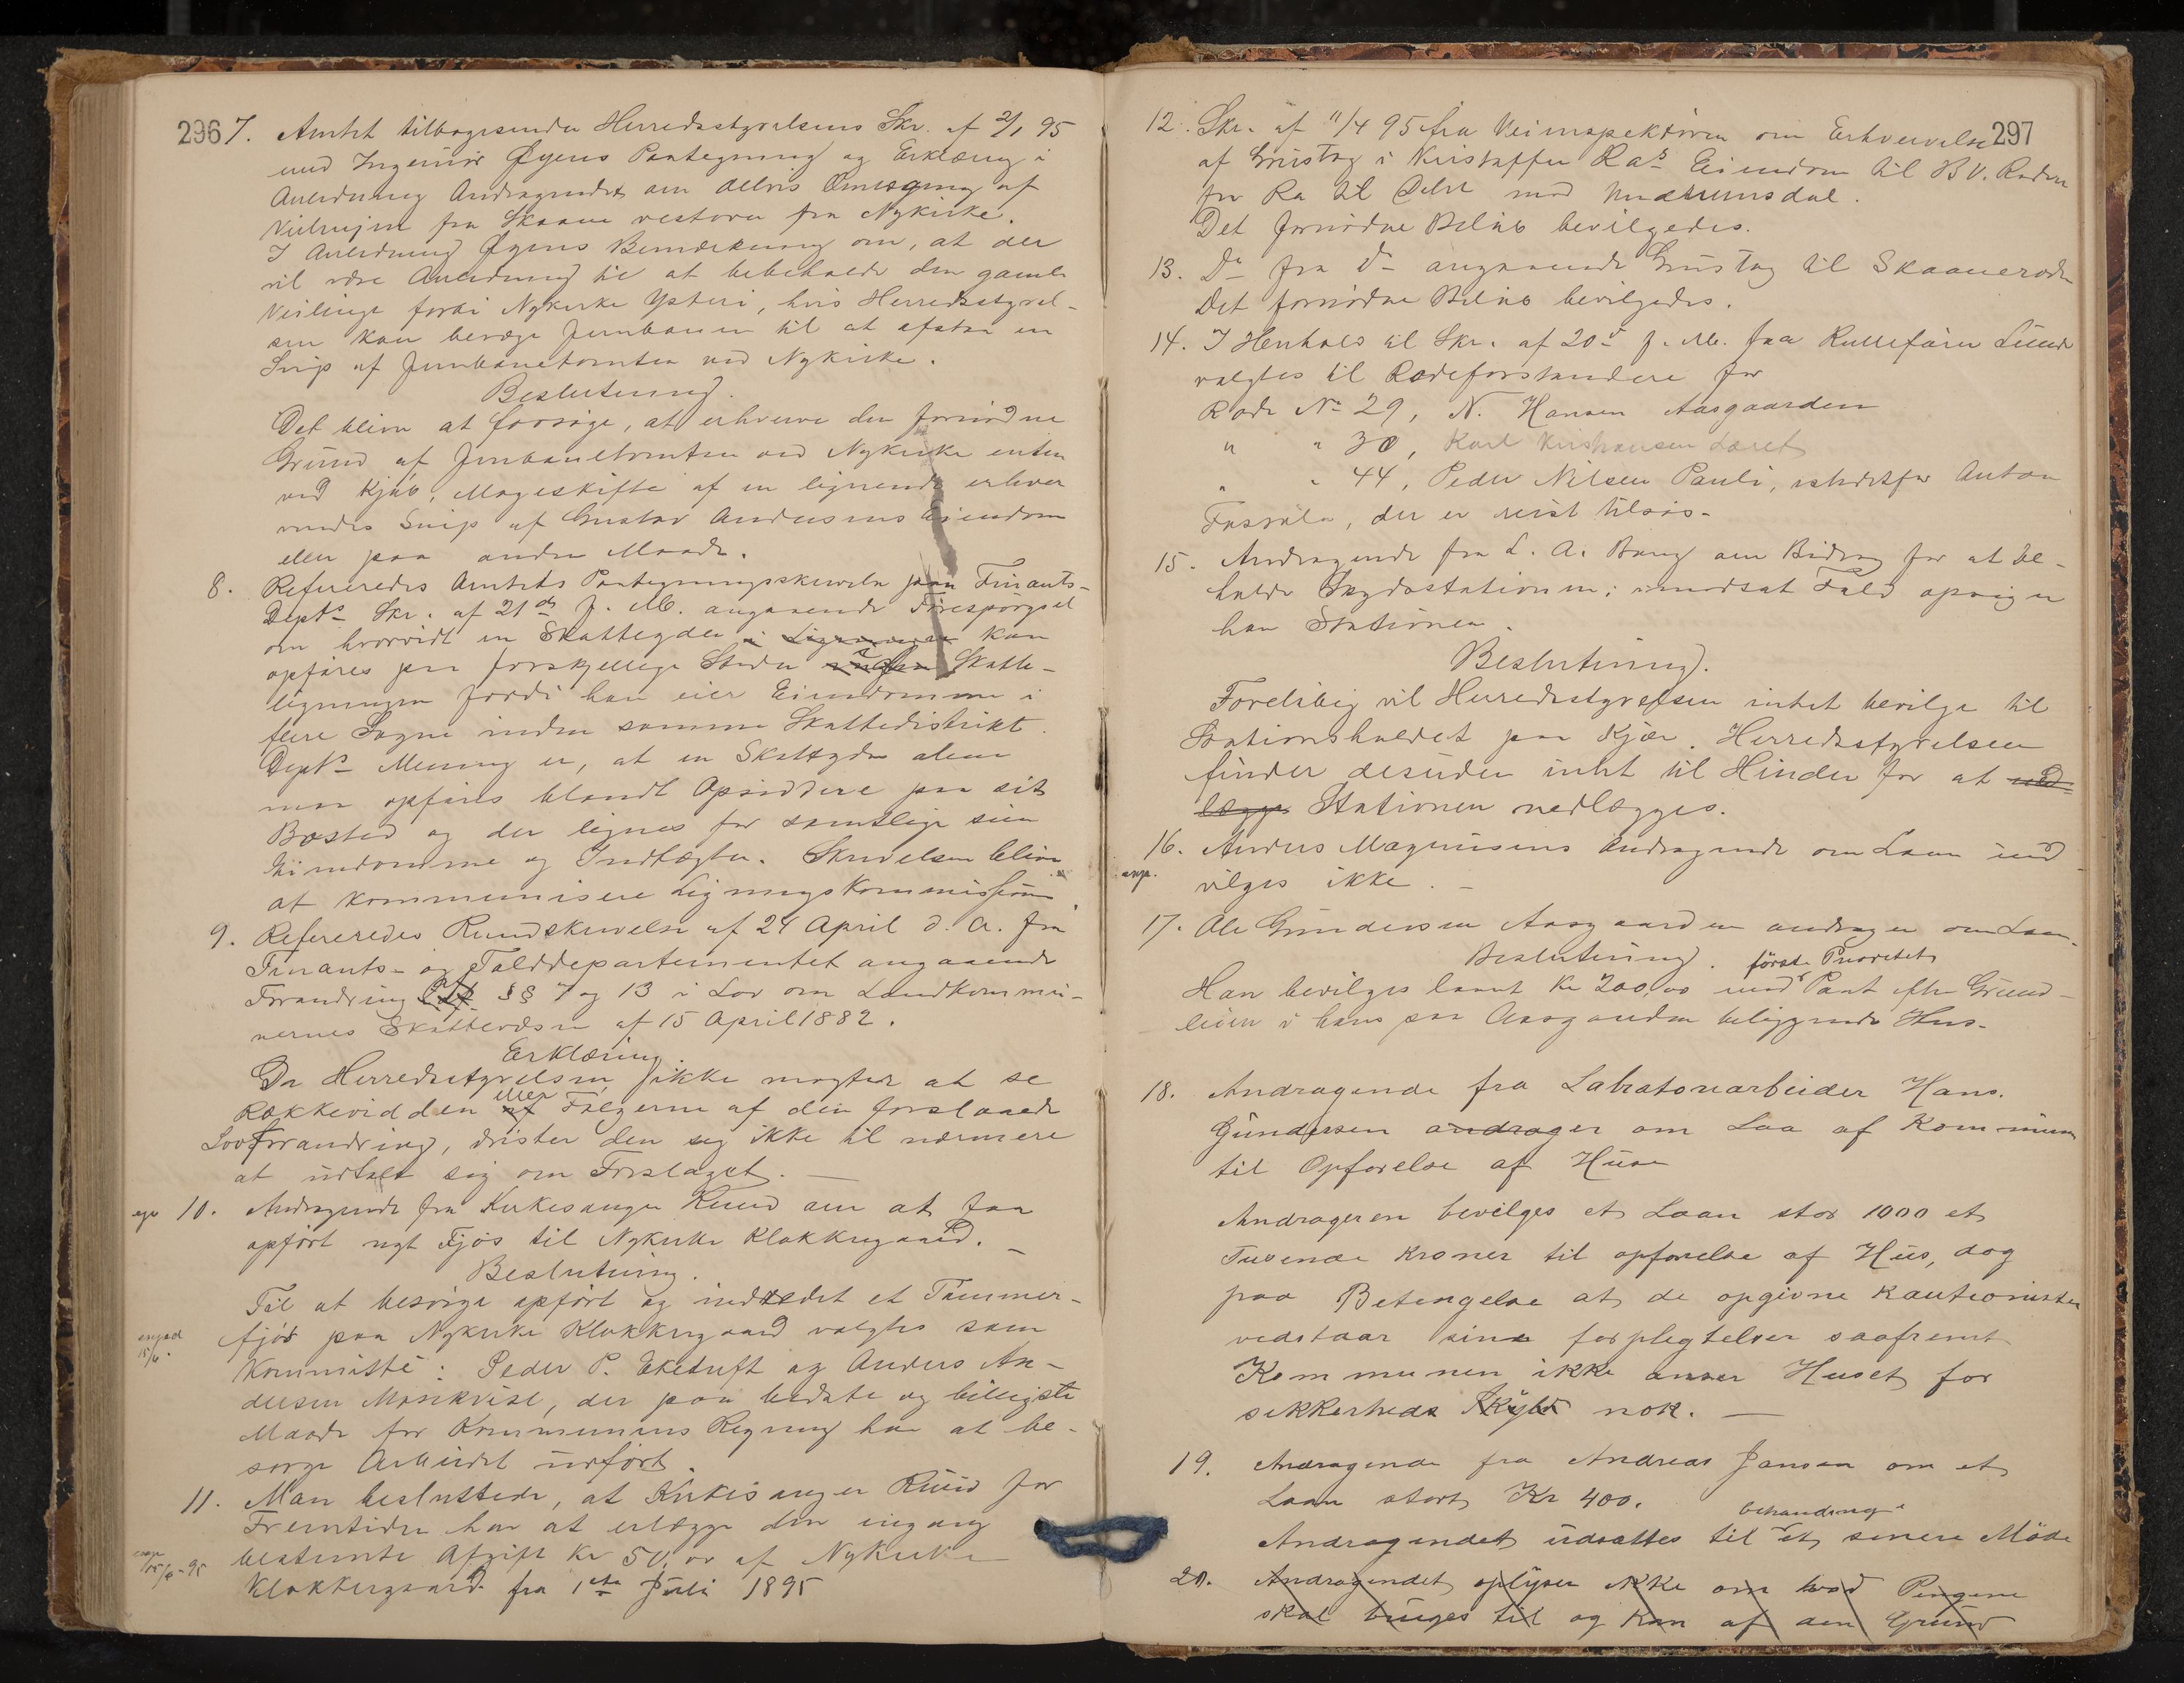 296
7. Amtet tilbagesender Herredsstyrelsens Skr. af 2/1 95
med Ingeniør Øyens Paategning og Erklæring i
Anledning Andragendet om delvis Omlægning af
Veilinjen fra Skaane vestover fra Nykirke.
I Anledning Øyens Bemærkning om, at der
vil være Anledning til at bebeholde den gamle
Veilinje forbi Nykirke Ysteri, hvis Herredsstyrel-
sen kan bevæge Jernbanen til at afstaa en
Snip af Jernbanetomten ved Nykirke.
Beslutning.
Det bliver at forsøge, at erhverve den fornødne
Grund af Jernbanetomten ved Nykirke enten
ved Kjøb, Mageskifte af en lignende erhver
vendes Snip af Gustav Andersens Eiendom
eller paa anden Maade.
8. Refereredes Amtets Paategningsskrivelse paa Finants-
Depts Skr. af 21de f. M. angaaende Forespørgsel
om hvorvidt en Skatteyder i kan
opføres paa forskjellige Steder Skatte-
ligningen fordi han eier Eiendomme i
flere Sogne inden samme Skattedistrikt.
Depts Mening er, at en Skatteyder alene
maa opføres blandt Opsiddere paa sit
Bosted og der lignes for samtlige sine
Eiendomme og Indtægter. Skrivelsen bliver
at kommunisere Ligningskommissionen.
9. Refereredes Rundskrivelse af 24 April d. A. fra
Finants- og Tolddepartementet angaaende
Forandring §§ 7 og 13 i Lov om Landkommu-
nernes Skattevæsen af 15 April 1882.
Erklæring.
Da Herredsstyrelsen ikke magter at se
Rækkevidden af eller Følgerne af den foreslaaede
Lovforandring, drister den sig ikke til nærmere
at udtale sig om Forslaget. —
10. Andragende fra Kirkesanger Ruud om at faa
opført nyt Fjøs til Nykirke Klokkergaard. —
Beslutning.
Til at besørge opført og indredet et Tømmer-
fjøs paa Nykirke Klokkergaard valgtes som
15/6.
Kommitté: Peder P. Eketuft og Anders An-
dersen Mørkvist, der paa bedste og billigste
Maade for Kommunens Regning har at be-
sørge Arbeidet udført.
11. Man besluttede, at Kirkesanger Ruud for
Fremtiden har at erlægge den engang
bestemte Afgift Kr 50,00 af Nykirke
15/6-95
Klokkergaard fra 1ste Juli 1895
297
12. Skr. af 11/4 95 fra Veiinspektøren om Erhvervelse
af Grustag i Kristoffer Ras Eiendom til BV. Roden
fra Ra til Delet mod Undrumsdal.
Det fornødne Beløb bevilgedes.
13. Do fra do angaaende Grustag til Skaanerode
Det fornødne Beløb bevilgedes.
14. I Henhold til Skr. af 20de f. M. fra Lund
valgtes til Rodeforstandere for
Rode No 29, N. Hansen Aasgaarden
" " 30, Karl Kristiansen Løret
" " 44, Peder Nilsen Pauli, istedetfor Anton
Fossøla, der er reist tilsøs.
15. Andragende fra L. A. Bang om Bidrag for at be-
holde Skydsstationen; imodsat Fald opsiger
han Stationen.
Beslutning.
Foreløbig vil Herredsstyrelsen intet bevilge til
Stationsholdet paa Kjær. Herredsstyrelsen
finder desuden intet til Hinder for at ned-
lægge Stationen nedlægges.
16. Anders Magnusens Andragende om Laan ind
exp. vilges ikke. —
17. Ole Gundersen Aasgaarden andrager om Laan.
Beslutning. første Prioritet
Han bevilges laant Kr 200,00 mod Pant efter Grund-
leien i hans paa Aasgaarden beliggende Hus.
18. Andragende fra Labratoriearbeider Hans
Gundersen andrager om Laa af Kommunen
til Opførelse af Huse
Andrageren bevilges et Laan stor 1000 et
Tusende Kroner til opførelse af Hus, dog
paa Betengelse at de opgivne Kautionister
vedstaar sine forplegtelser saafremt
Kommunen ikke anser Huset for
sekkerheds nok. —
19. Andragende fra Andreas Jansen om et
Laan stort Kr 400.
behandling i
Andragendet udsættes til et senere Møde
20. Andragendet oplyser ikke om hvad Pengene
skal bruges til og kan af den Grund